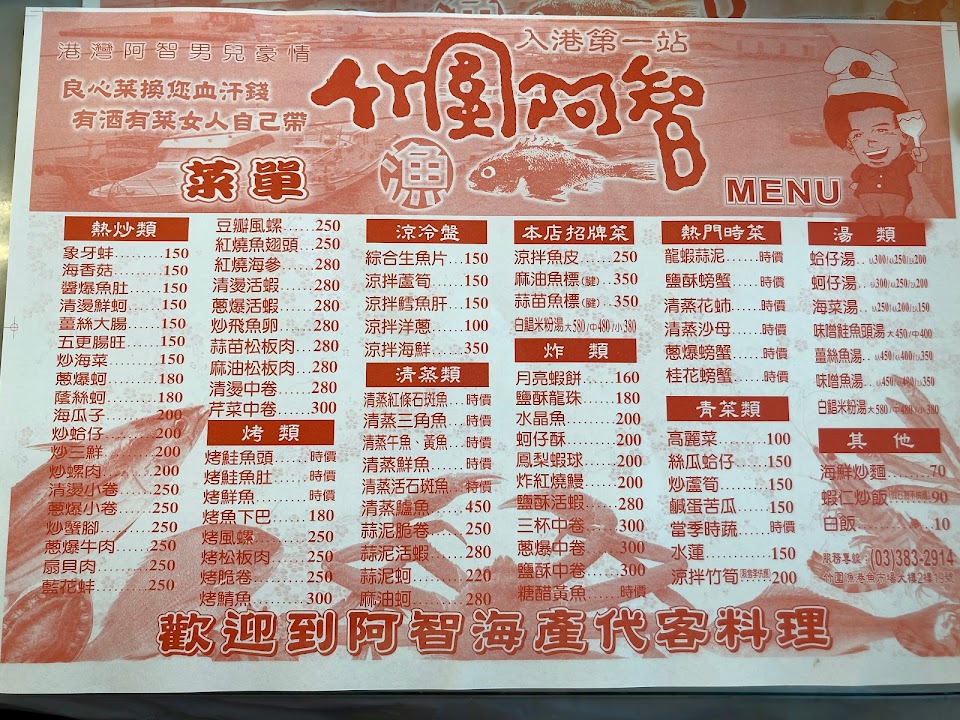 港灣阿智男兒豪情
入港第一站
良心菜換您血汗錢
有酒有菜女人自己帶
竹圍阿智
漁
菜單
MENU
熱炒類
象牙蚌......150
海香菇......150
醬爆魚肚......150
清燙鮮蚵......150
薑絲大腸......150
五更腸旺......150
炒海菜......150
蔥爆蚵......180
蔭絲蚵......180
海瓜子......200
炒蛤仔......200
炒三鮮......200
炒螺肉......200
清燙小卷......250
蔥爆小卷......250
炒蟹腳......250
蔥爆牛肉......250
扇貝肉......250
藍花蚌......250
豆瓣風螺......250
紅燒魚翅頭...250
紅燒海參......280
清燙活蝦......280
蔥爆活蝦......280
炒飛魚卵......280
蒜苗松板肉...280
麻油松板肉...280
清燙中卷......280
芹菜中卷......300
烤 類
烤鮭魚頭......時價
烤鮭魚肚......時價
烤鮮魚......時價
烤魚下巴......180
烤風螺......250
烤松板肉......250
烤脆卷......250
烤鯖魚......300
涼冷盤
綜合生魚片...150
涼拌蘆筍......150
涼拌鱈魚肝...150
涼拌洋蔥......100
涼拌海鮮......350
清蒸類
清蒸紅條石斑魚...時價
清蒸三角魚...時價
清蒸午魚、黃魚...時價
清蒸鮮魚......時價
清蒸活石斑魚...時價
清蒸鱸魚......450
蒜泥脆卷......250
蒜泥活蝦......280
蒜泥蚵......220
麻油蚵......280
本店招牌菜
涼拌魚皮......250
麻油魚標(腱)...350
蒜苗魚標(腱)...350
白鯧米粉湯大580/中480/小380
炸 類
月亮蝦餅......160
鹽酥龍珠......180
水晶魚......200
蚵仔酥......200
鳳梨蝦球......200
炸紅燒鰻......200
鹽酥活蝦......280
三杯中卷......300
蔥爆中卷......300
鹽酥中卷......300
糖醋黃魚......時價
熱門時菜
龍蝦蒜泥......時價
鹽酥螃蟹......時價
清蒸花蜅......時價
清蒸沙母......時價
蔥爆螃蟹......時價
桂花螃蟹......時價
青菜類
高麗菜......100
絲瓜蛤仔......150
炒蘆筍......150
鹹蛋苦瓜......150
當季時蔬......時價
水蓮......150
涼拌竹筍......200
湯 類
蛤仔湯..大300/中250/小200
蚵仔湯..大300/中250/小200
海菜湯..大250/中200/小150
味噌鮭魚頭湯 大450/中400
薑絲魚湯..大450/中400/小350
味噌魚湯..大450/中400/小350
白鯧米粉湯大580/中480/小380
其 他
海鮮炒麵......70
蝦仁炒飯 90
白飯......10
服務專線:(03)383-2914
竹圍漁港魚市場大樓2樓19號
歡迎到阿智海產代客料理